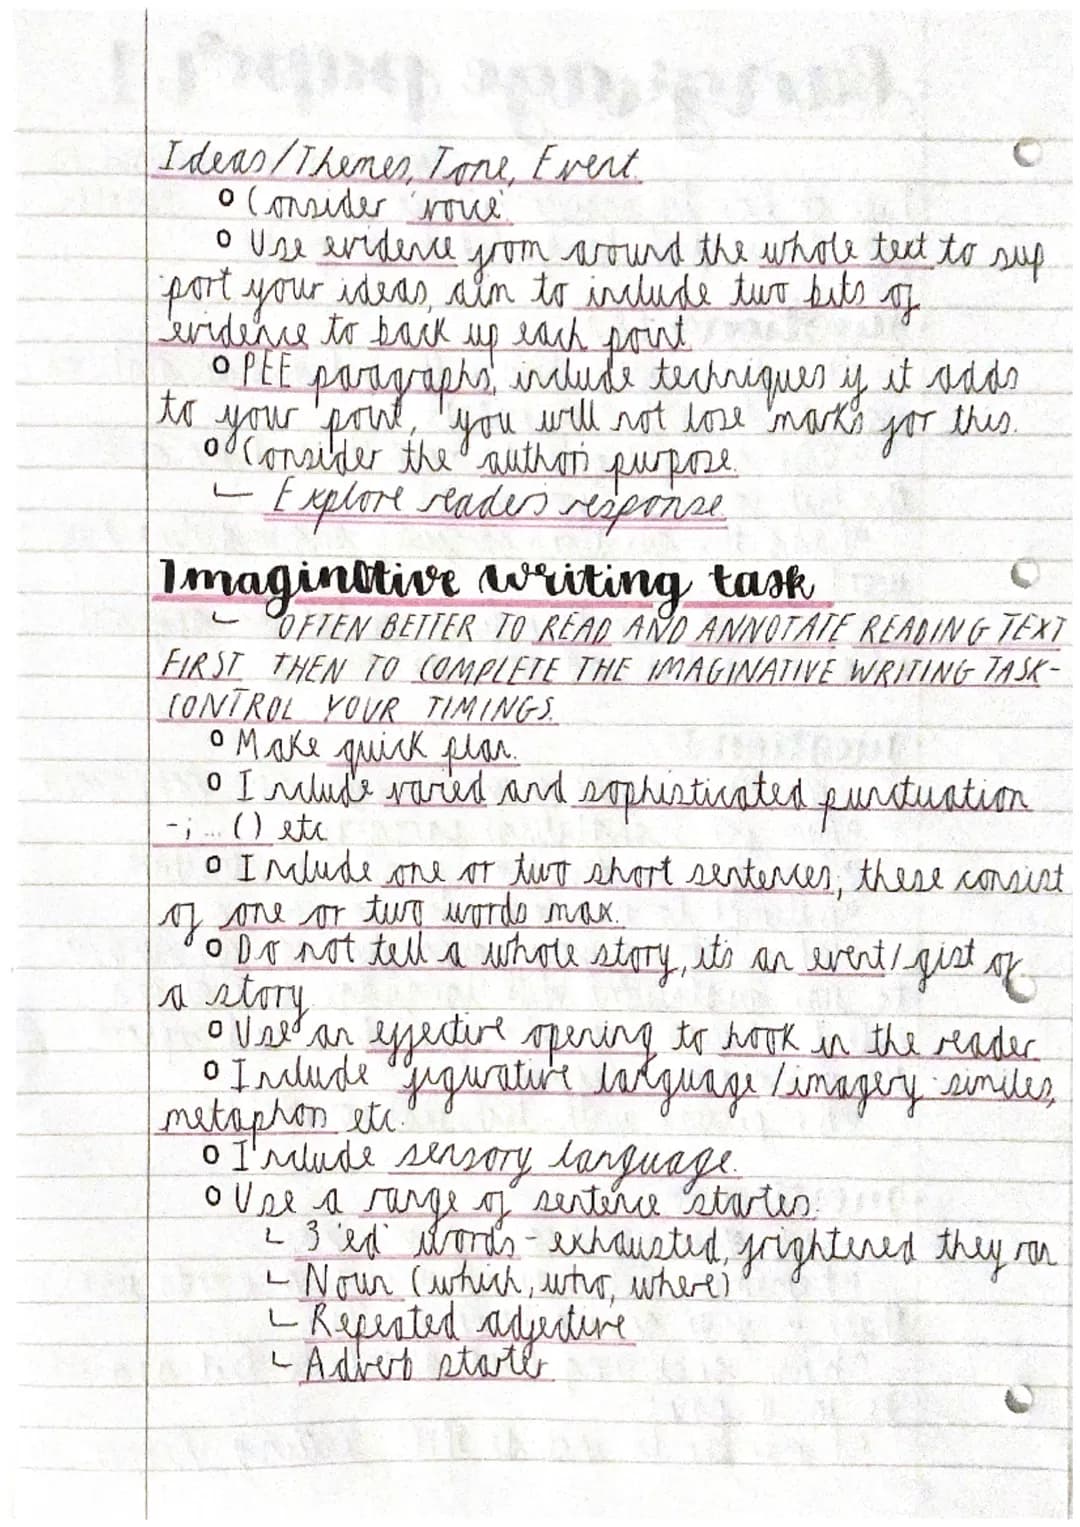 Ideas/Themes, Tone, Event.
o Consider 'voice'.
o Use evidence from around the whole text to sup
port your ideas, aim to include two bits of
evidence to back up each point.
o PEE paragraphs, include techniques if it adds
to your point, you will not lose marks for this.
o Consider the authors purpose.
∟ Explore readers response.
Imaginative writing task
∟ OFTEN BETTER TO READ AND ANNOTATE READING TEXT
FIRST THEN TO COMPLETE THE IMAGINATIVE WRITING TASK-
CONTROL YOUR TIMINGS.
o Make quick plan.
o Include varied and sophisticated punctuation
-; ... () etc
o Include one or two short sentences, these consist
of one or two words max.
o Do not tell a whole story, its an event/gist of
a story.
o Use an effective opening to hook in the reader
o Include figurative language/imagery similes,
metaphors etc.
o Include sensory language.
o Use a range of sentence starters.
∟ 3 'ed' words - exhausted, frightened they ran
∟ Noun (which, who, where)
∟ Repeated adjective
∟ Adverb starter